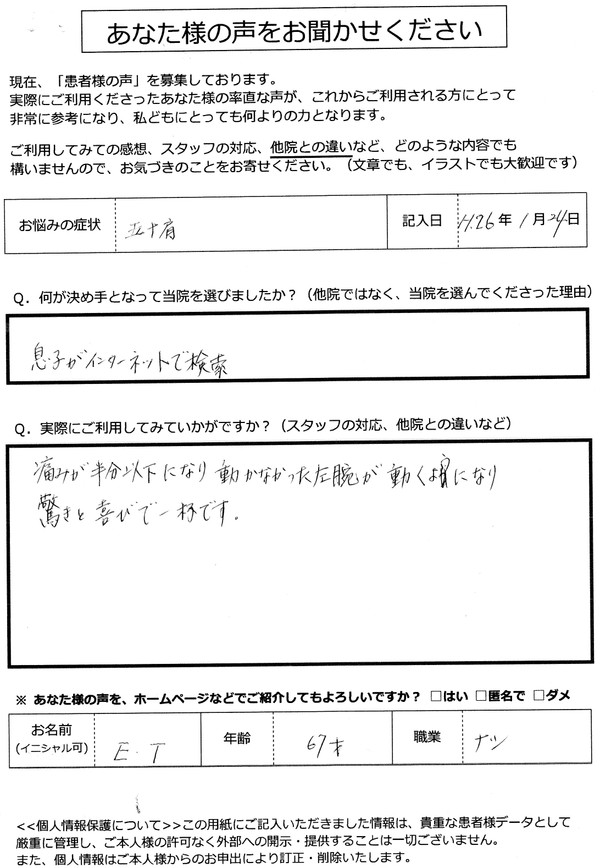 あなた様の声をお聞かせください
現在、「患者様の声」を募集しております。
実際にご利用くださったあなた様の率直な声が、これからご利用される方にとって
非常に参考になり、私どもにとっても何よりの力となります。
ご利用してみての感想、スタッフの対応、他院との違いなど、どのような内容でも
構いませんので、お気づきのことをお寄せください。（文章でも、イラストでも大歓迎です）
お悩みの症状 五十肩 記入日 H.26年 1月24日
Q．何が決め手となって当院を選びましたか？（他院ではなく、当院を選んでくださった理由）
息子がインターネットで検索
Q．実際にご利用してみていかがですか？（スタッフの対応、他院との違いなど）
痛みが半分以下になり 動かなかった左腕が 動く様になり
驚きと喜びで一杯です。
※ あなた様の声を、ホームページなどでご紹介してもよろしいですか？ □はい □匿名で □ダメ
お名前 E.T 年齢 67才 職業 ナシ
(イニシャル可)
<<個人情報保護について>>この用紙にご記入いただきました情報は、貴重な患者様データとして
厳重に管理し、ご本人様の許可なく外部への開示・提供することは一切ございません。
また、個人情報はご本人様からのお申出により訂正・削除いたします。